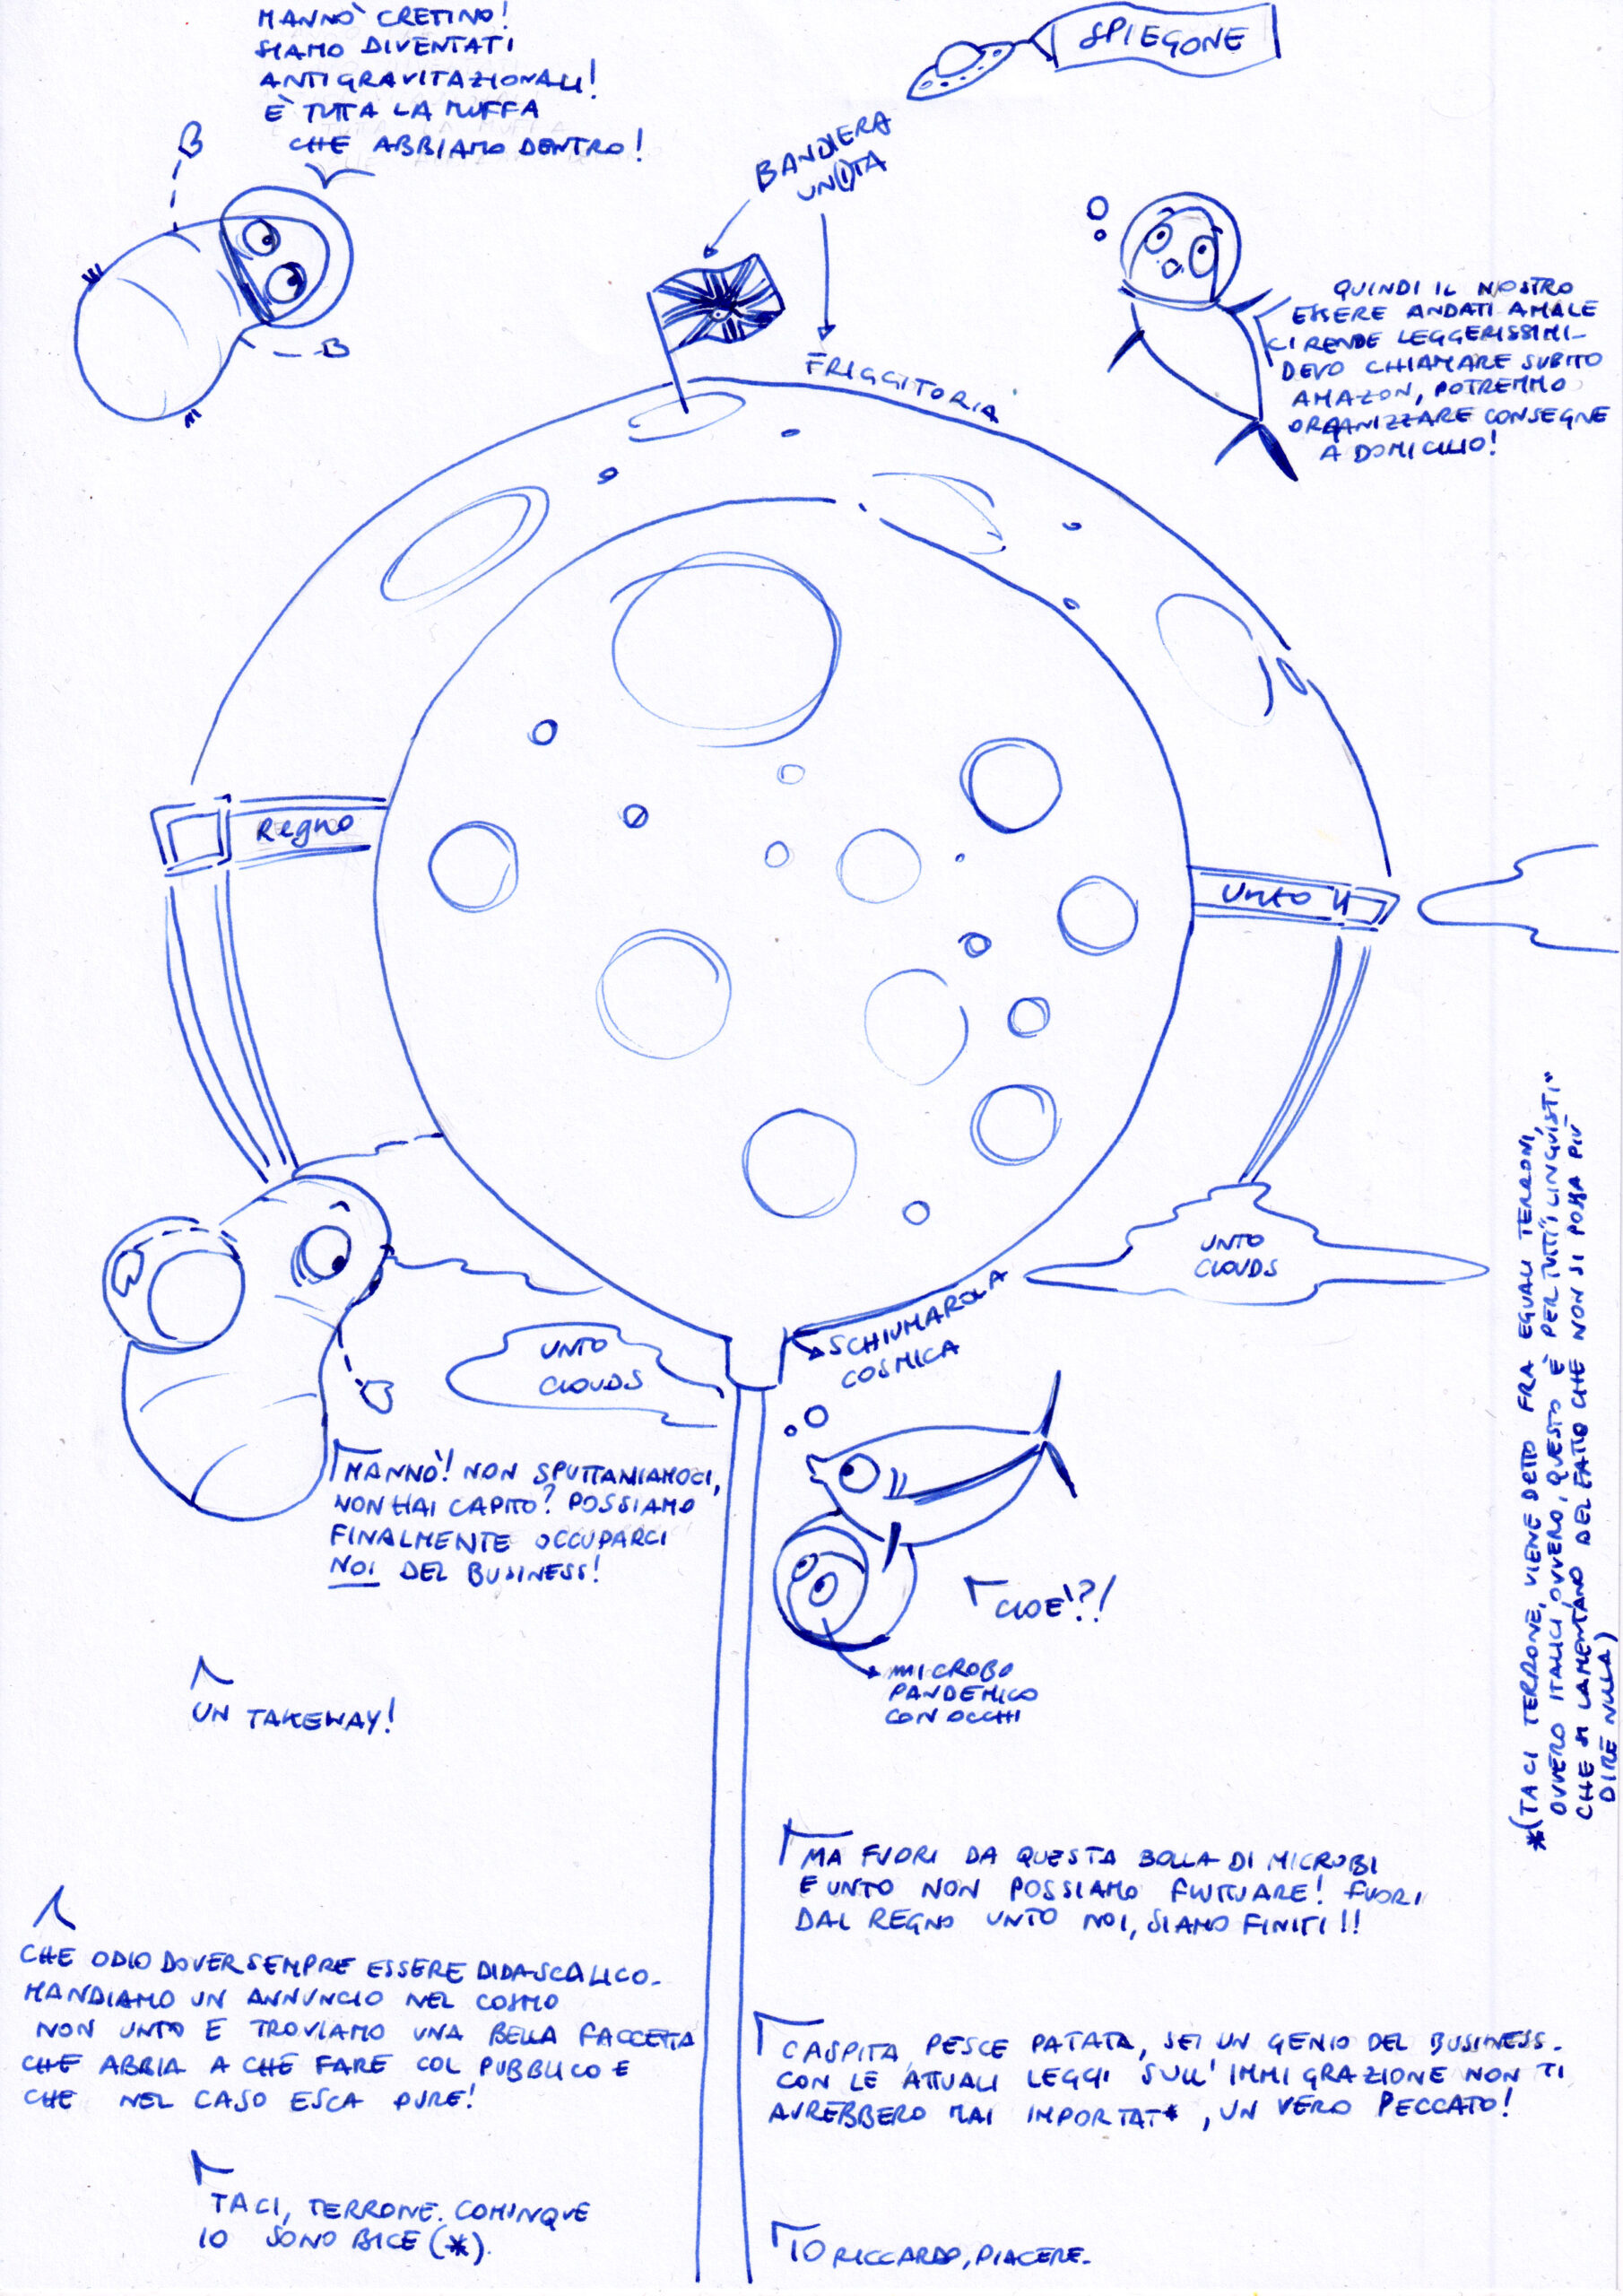 MANNÒ CRETINO!
SIAMO DIVENTATI
ANTIGRAVITAZIONALI!
È TUTTA LA MUFFA
CHE ABBIAMO DENTRO!
SPIEGONE
BANDIERA
UN(I)TA
FRIGGITORIA
QUINDI IL NOSTRO
ESSERE ANDATI A MALE
CI RENDE LEGGERISSIMI-
DEVO CHIAMARE SUBITO
AMAZON, POTREMMO
ORGANIZZARE CONSEGNE
A DOMICILIO!
Regno
UNTO
UNTO
CLOUDS
UNTO
CLOUDS
SCHIUMAROLA
COSMICA
MANNÒ! NON SPUTTANIAMOCI,
NON HAI CAPITO? POSSIAMO
FINALMENTE OCCUPARCI
NOI DEL BUSINESS!
CIOÈ?!
MICROBO
PANDEMICO
CON OCCHI
UN TAKEWAY!
MA FUORI DA QUESTA BOLLA DI MICROBI
E UNTO NON POSSIAMO FLUTTUARE! FUORI
DAL REGNO UNTO NOI, SIAMO FINITI!!
CHE ODIO DOVER SEMPRE ESSERE DIDASCALICO.
MANDIAMO UN ANNUNCIO NEL COSMO
NON UNTO E TROVIAMO UNA BELLA FACCETTA
CHE ABBIA A CHE FARE COL PUBBLICO E
CHE NEL CASO ESCA PURE!
CASPITA, PESCE PATATA, SEI UN GENIO DEL BUSINESS.
CON LE ATTUALI LEGGI SULL'IMMIGRAZIONE NON TI
AVREBBERO MAI IMPORTAT*, UN VERO PECCATO!
TACI, TERRONE. COMUNQUE
IO SONO BICE (*).
IO RICCARDO, PIACERE.
*(TACI TERRONE, VIENE DETTO FRA EGUALI TERRONI,
OVVERO ITALICI, OVVERO, QUESTO È PER TUTTI "I LINGUISTI"
CHE SI LAMENTANO DEL FATTO CHE NON SI POSSA PIÙ
DIRE NULLA)